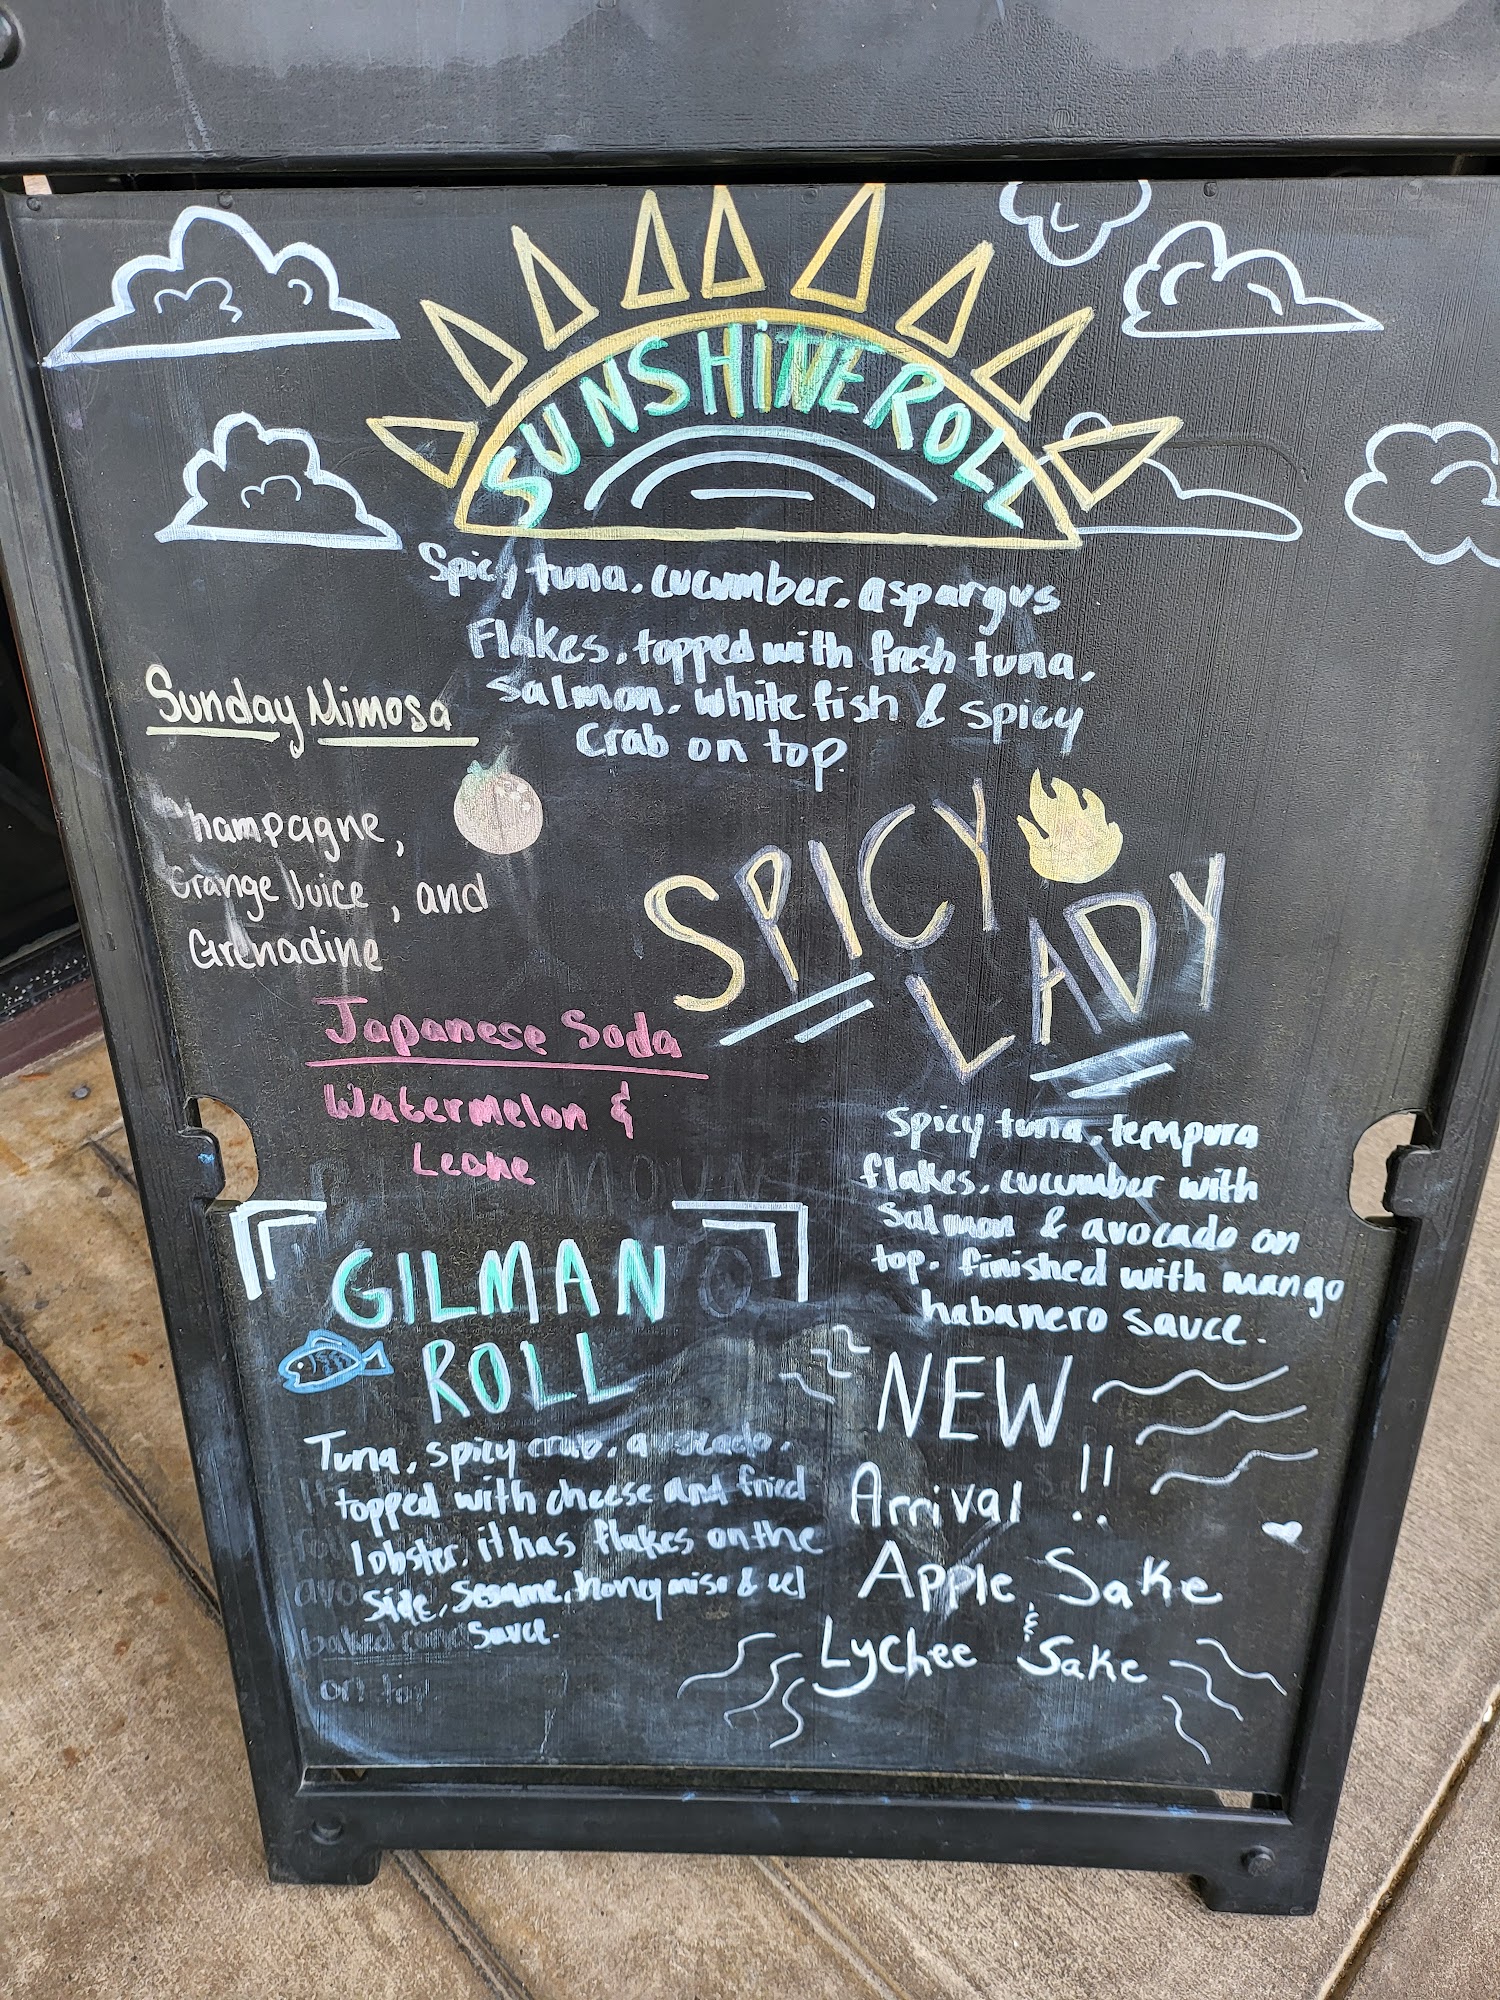 SUNSHiNE ROLL
Spicy tuna, cucumber, aspargus
Flakes, topped with fresh tuna,
salmon, white fish & spicy
crab on top.
Sunday Mimosa
Champagne,
Orange Juice, and
Grenadine
SPICY
LADY
spicy tuna, tempura
flakes, cucumber with
salmon & avocado on
top. finished with mango
habanero sauce.
Japanese Soda
Watermelon &
GILMAN
ROLL
Tuna, spicy crab, avocado,
topped with cheese and fried
lobster, it has flakes on the
side, sesame, honey miso & eel
sauce.
NEW
Arrival !!
Apple Sake
&
Lychee Sake
baked
on top